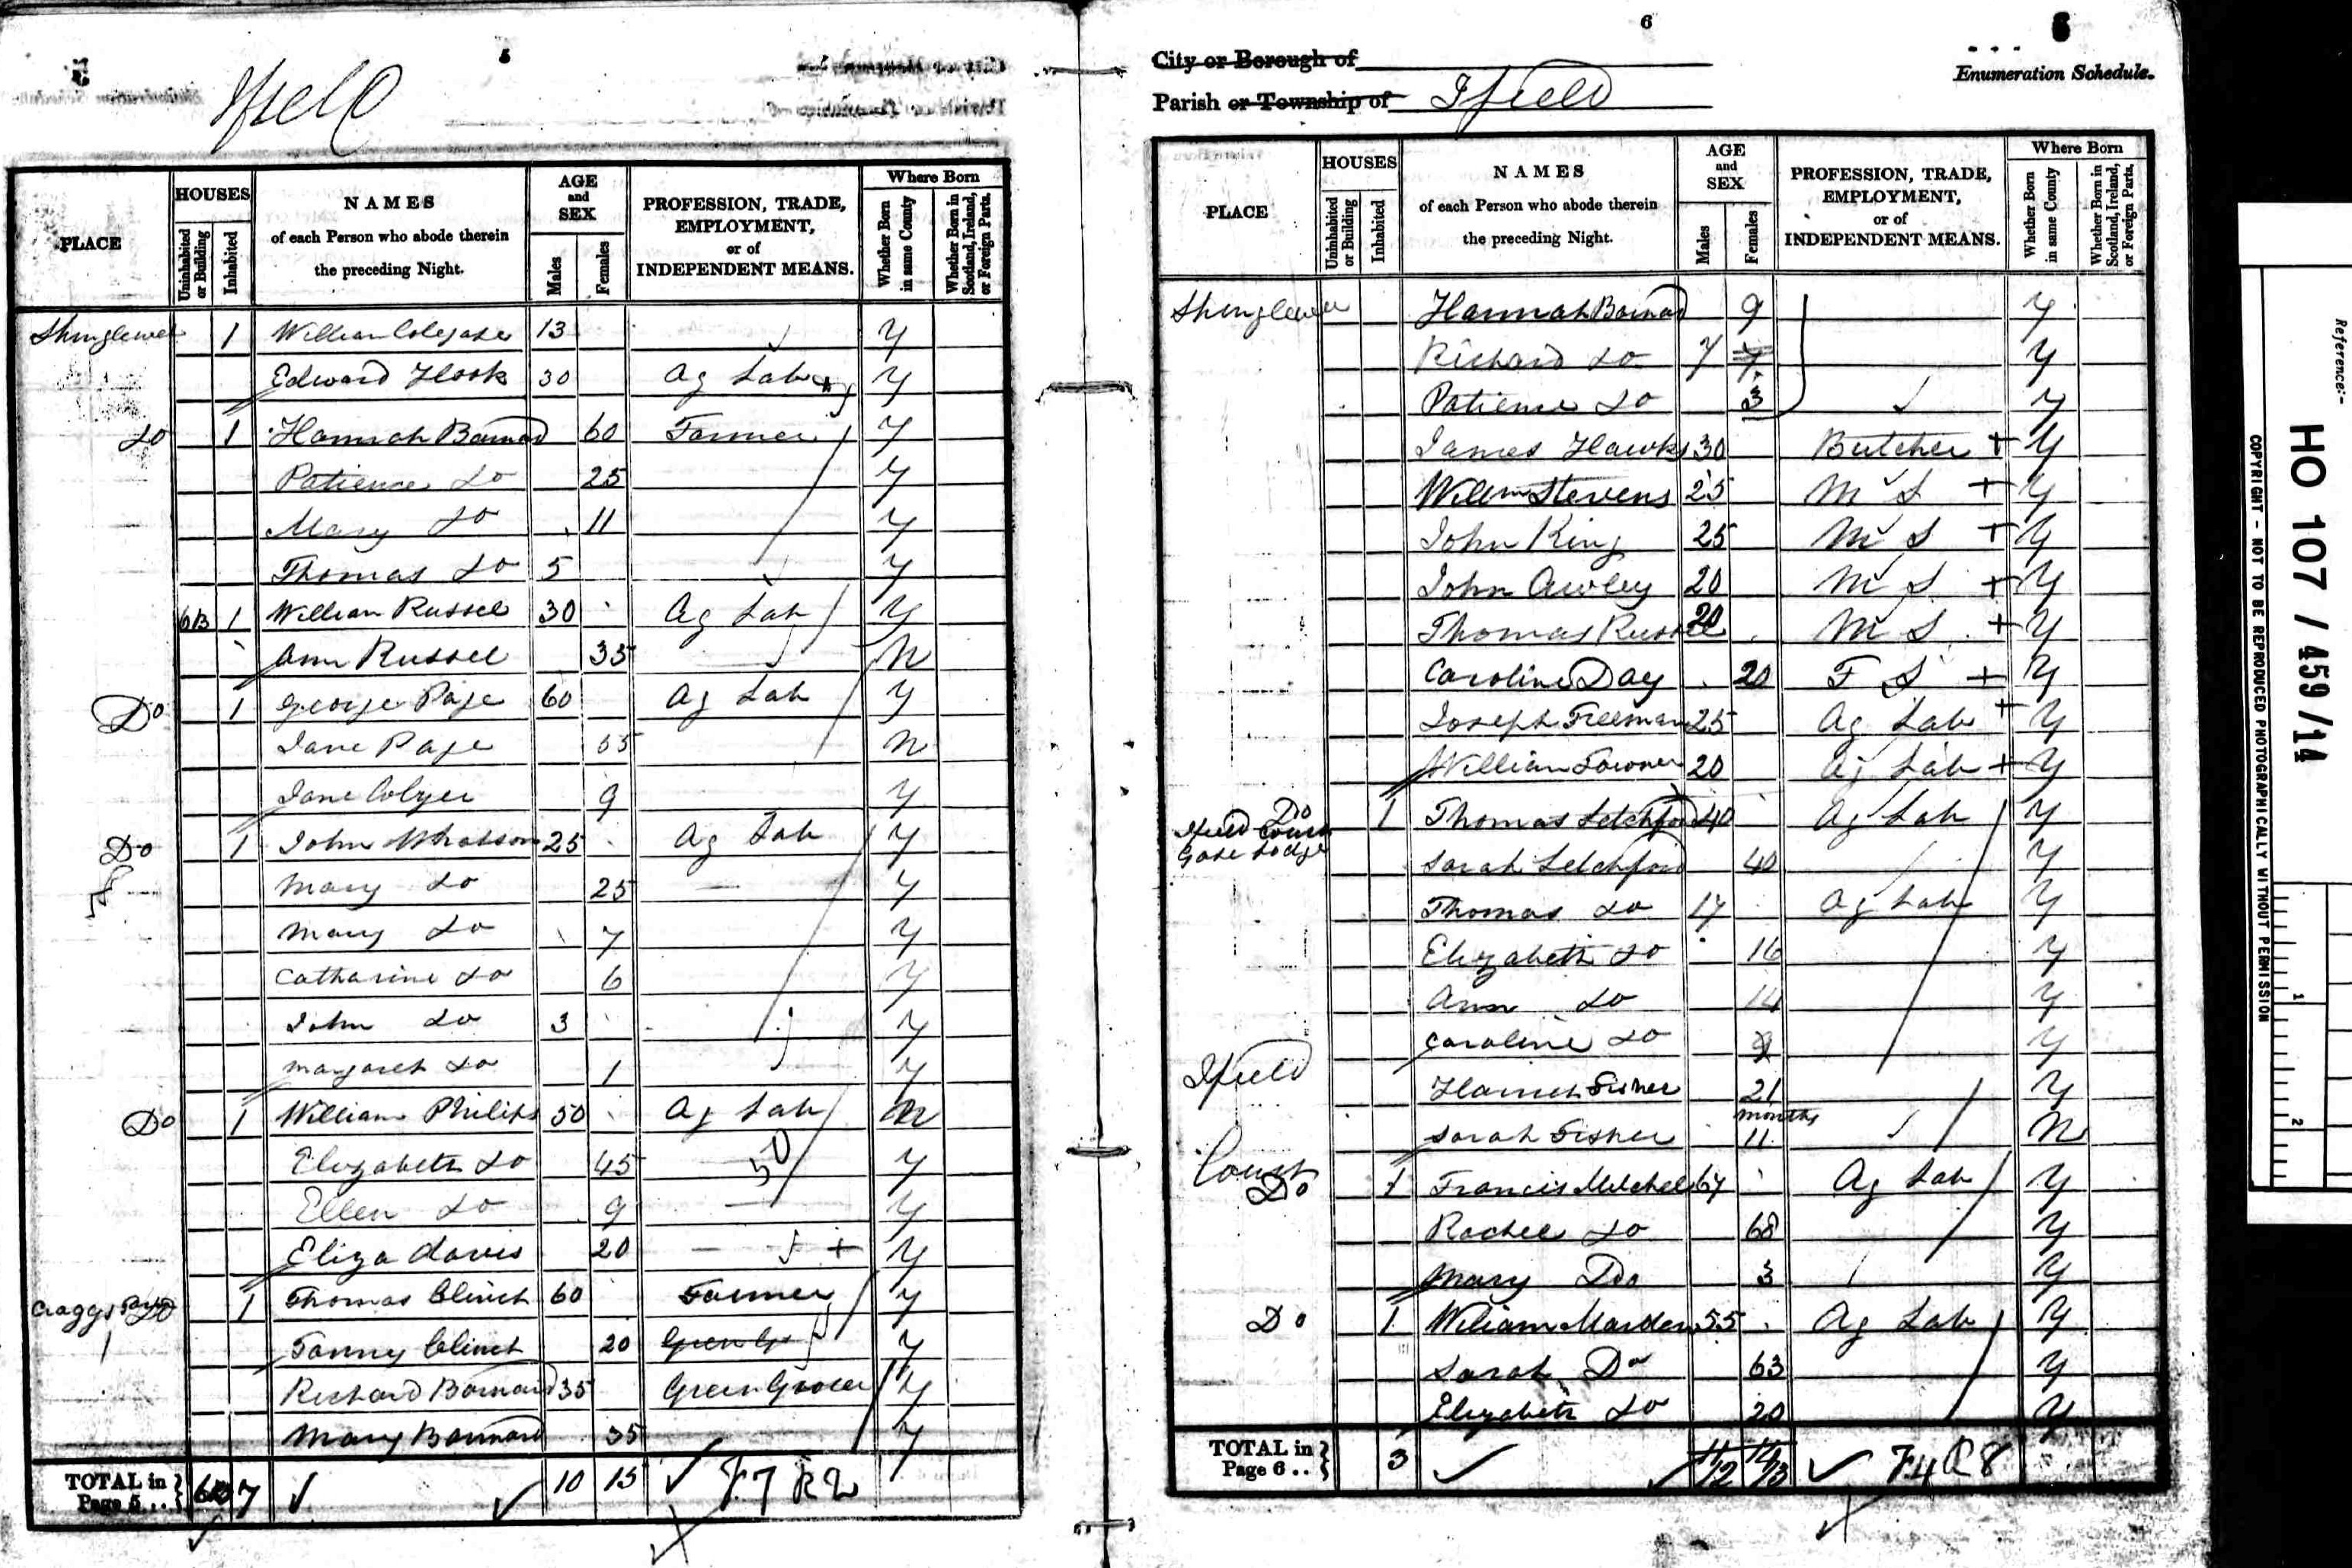 5
Ifield
PLACE HOUSES Uninhabited or Building Inhabited NAMES of each Person who abode therein the preceding Night. AGE and SEX Males Females PROFESSION, TRADE, EMPLOYMENT, or of INDEPENDENT MEANS. Where Born Whether Born in same County Whether Born in Scotland, Ireland, or Foreign Parts.
Shinglewell 1 William Colegate 13 Y
Edward Hook 30 Ag Lab Y
Do 1 Hannah Barnard 60 Farmer Y
Patience Do 25 Y
Mary Do 11 Y
Thomas Do 5 Y
6B 1 William Russel 30 Ag Lab Y
Ann Russell 35 N
Do 1 George Page 60 Ag Lab Y
Jane Page 65 N
Jane Colyer 9 Y
Do 1 John Whatson 25 Ag Lab Y
Mary Do 25 Y
Mary Do 7 Y
Catharine Do 6 Y
John Do 3 Y
Margaret Do 1 Y
Do 1 William Philips 50 Ag Lab N
Elizabeth Do 45 Y
Ellen Do 9 Y
Eliza Davis 20 + Y
Do 1 Thomas Clinch 60 Farmer Y
Fanny Clinch 20 Y
Richard Barnard 35 Green Grocer Y
Mary Barnard 35 Y
TOTAL in Page 5... 6B 7 10 15 F.7 R 2
6
City or Borough of
Enumeration Schedule.
Parish or Township of Ifield
PLACE HOUSES Uninhabited or Building Inhabited NAMES of each Person who abode therein the preceding Night. AGE and SEX Males Females PROFESSION, TRADE, EMPLOYMENT, or of INDEPENDENT MEANS. Where Born Whether Born in same County Whether Born in Scotland, Ireland, or Foreign Parts.
Shinglewell Hannah Barnard 9 Y
Richard Do 7 Y
Patience Do 3 Y
James Hawks 30 Butcher + Y
Willm Stevens 25 M S + Y
John King 25 M S + Y
John Awley 20 M S + Y
Thomas Russell 20 M S + Y
Caroline Day 20 F S + Y
Joseph Freeman 25 Ag Lab + Y
William 20 Ag Lab + Y
Do Ifield Court Gate Lodge 1 Thomas Letchford 40 Ag Lab Y
Sarah Letchford 40 Y
Thomas Do 17 Ag Lab Y
Elizabeth Do 16 Y
Ann Do 14 Y
Caroline Do 9 Y
Ifield Hannah Fisher 21 Y
Sarah Fisher months 11 N
Court Do 1 Francis Mitchel 67 Ag Lab Y
Rachel Do 68 Y
Mary Do 3 Y
Do 1 William Marden 55 Ag Lab Y
Sarah Do 63 Y
Elizabeth Do 20 Y
TOTAL in Page 6.. 3 11/12 14/13 F.4 R 8
Reference:-
HO 107 / 459/14
COPYRIGHT - NOT TO BE REPRODUCED PHOTOGRAPHICALLY WITHOUT PERMISSION
1
2